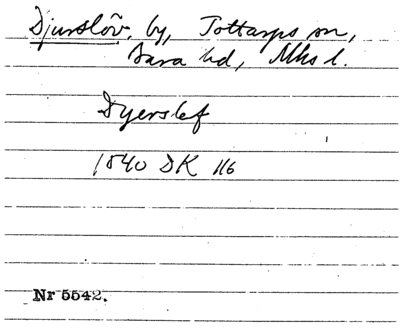 Djurslöv, by, Tottarps sn,
Bara hd, Mhs l.
Dyerslef
1540 DK 116
Nr 5542.